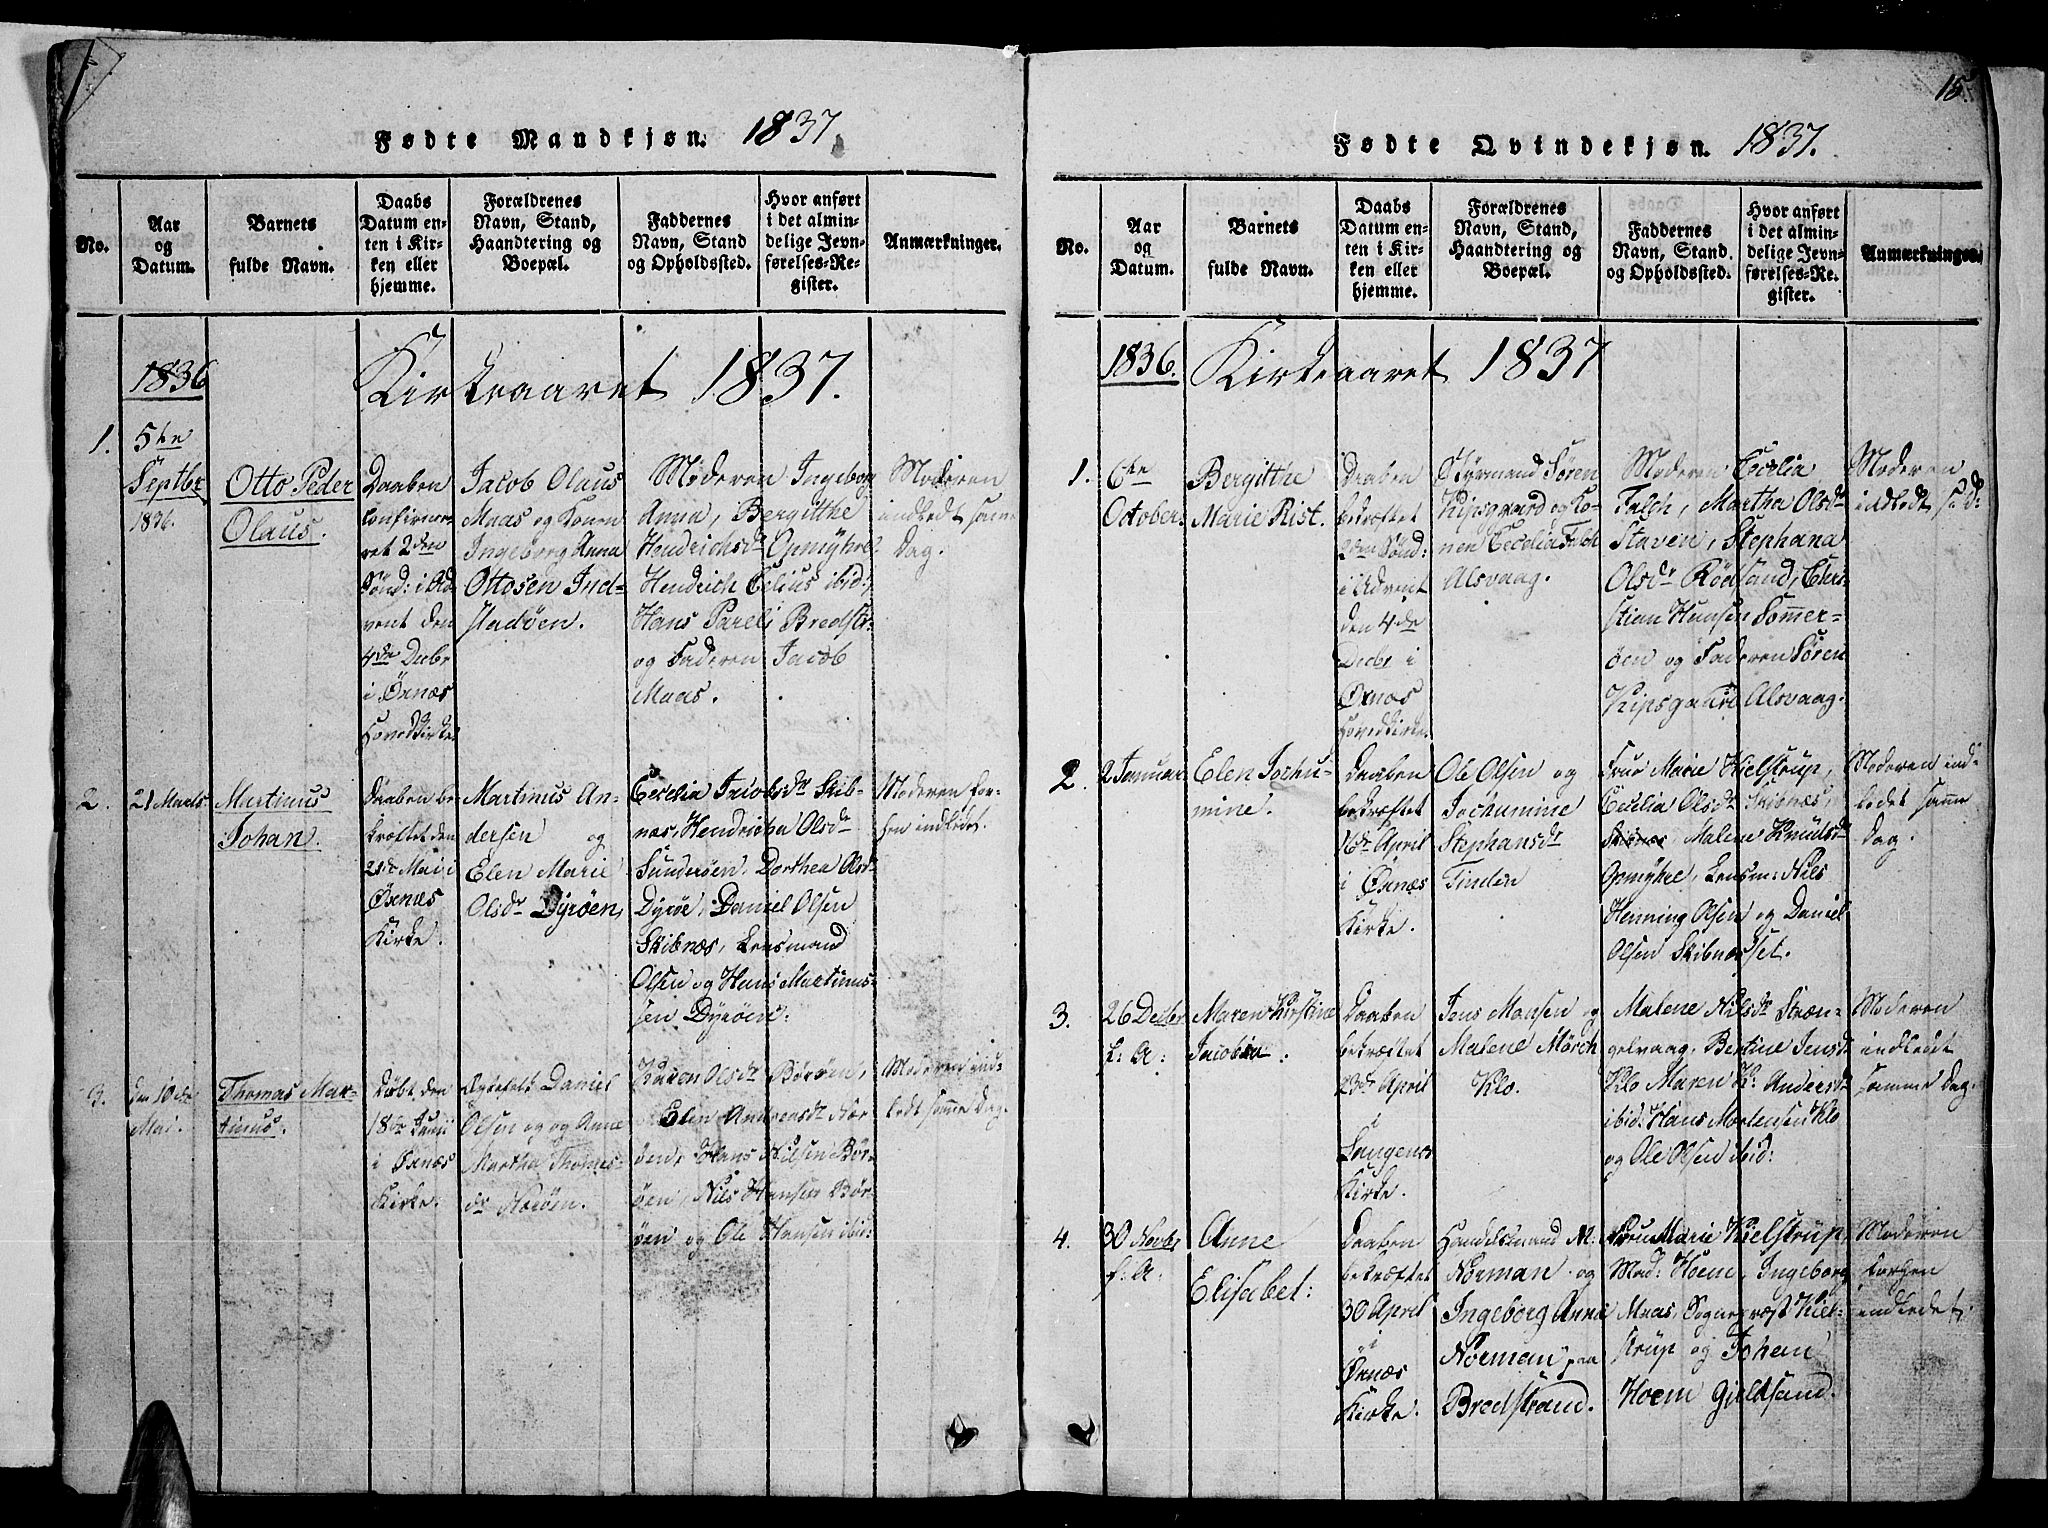 15
Fødte Mandkjøn. 1837.
No.
Aar
og
Datum.
Barnets
fulde Navn.
Daabs
Datum en-
ten i Kir-
ken eller
hjemme.
Forældrenes
Navn, Stand,
Haandtering og
Boepæl.
Faddernes
Navn, Stand
og Opholdssted.
Hvor anført
i det almin-
delige Jevn-
førelses-Re-
gister.
Anmærkninger.
1836
Kirkeaaret 1837.
1.
5te
Septbr
1836.
Otto Peder
Olaus.
Daaben
confirme-
ret 2den
Sønd: i Ad
vent den
4de Decbr
i Øxnæs
Hovedkirke.
Jacob Olaus
Maas og Konen
Ingeborg Anna
Ottosen Ind-
stadöen.
Moderen Ingeborg
Anna, Bergitthe
Hendrichsdr Opmyhre
Hendrich Celius ibid:
Hans Pareli Bredstr:
og Faderen Jacob
Maas.
Moderen
indledt samme
Dag.
2.
21 Marts
Martinus
Johan.
Daaben be-
kræftet den
21de Mai i
Øxnæs
Kirke.
Martinus An-
dersen og
Elen Marie
Olsdr Dyröen
Cecelia Jacobsdr Skib-
næs, Hendricha Olsdr
Sunderöen, Dorthea Olsdr
Dyröe, Daniel Olsen
Skibnæs, Lensmand
Olsen og Hans Martinus-
sen Dyröen.
Moderen for-
hen indledet.
3.
den 10de
Mai.
Thomas Mar-
tinus.
Döbt den
18de Junii
i Øxnæs
Kirke.
Daniel
Olsen og og Anne
Martha Thomas-
dr
Karen Olsdr Börøen,
Elen Andreasdr
öen, Hans Nilsen Bör-
öen, Nils Hansen Bör-
öen og Ole Hansen ibid:
Moderen ind-
ledt samme Dag.
Fødte Qvindekjøn. 1837.
No.
Aar
og
Datum.
Barnets
fulde Navn.
Daabs
Datum en-
ten i Kir-
ken eller
hjemme.
Forældrenes
Navn, Stand,
Haandtering og
Boepæl.
Faddernes
Navn, Stand
og Opholdssted.
Hvor anført
i det almin-
delige Jevn-
førelses-Re-
gister.
Anmærkninger.
1836.
Kirkeaaret 1837
1.
6te
October.
Bergitthe
Marie Rist.
Daaben
bekræftet
2den Sønd:
i Advent
den 4de
Decbr i
Øxnæs
Hovedkirke.
Styrmand Sören
Kipsgaard og Ko-
nen Cecelia Falch
Alsvaag.
Moderen Cecelia
Falch, Martha Olsdr
Staven, Stephana
Olsdr Rödsand, Chri-
stian Hansen Sommer-
öen og Faderen Sören
Kipsgaard Alsvaag.
Moderen
indledt s: D:
2.
2 Januar
Elen Jochu-
mine.
Daaben
bekræftet
16de April
i Øxnæs
Kirke.
Ole Olsen og
Jochumine
Stephansdr
Tinden
Frue Marie Kielstrup,
Cecelia Olsdr Skibnæs,
Malene Knudsdr
Opmyhre, Lensm: Nils
Henning Olsen og Daniel
Olsen Skibnæsset.
Moderen ind-
ledet samme
Dag.
3.
26 Decbr
f: A:
Maren Kirstine
Jacobia.
Daaben
bekræftet
23de April
i
Langenes
Kirke.
Jens Monsen og
Malene Mörch
Klo.
Malene Nilsdr Stræn-
gelvaag, Bertine Jensdr
Klo Maren K: Andersdr
ibid: Hans Mortensen Klo
og Ole Olsen ibid:
Moderen
indledt
samme Dag.
4.
30 Novbr
f: A:
Anne
Elisabet:
Daaben
bekræftet
30 April
i
Øxnæs
Kirke.
Handelsmand M:
Norman og
Ingeborg Anna
Norman paa
Bredstrand.
Frue Marie Kielstrup,
Mad: Hoem, Ingeborg
Maas, Sognepræst Kiel-
strup og Johan
Hoem Gieldsand.
Moderen
forhen
indledet.